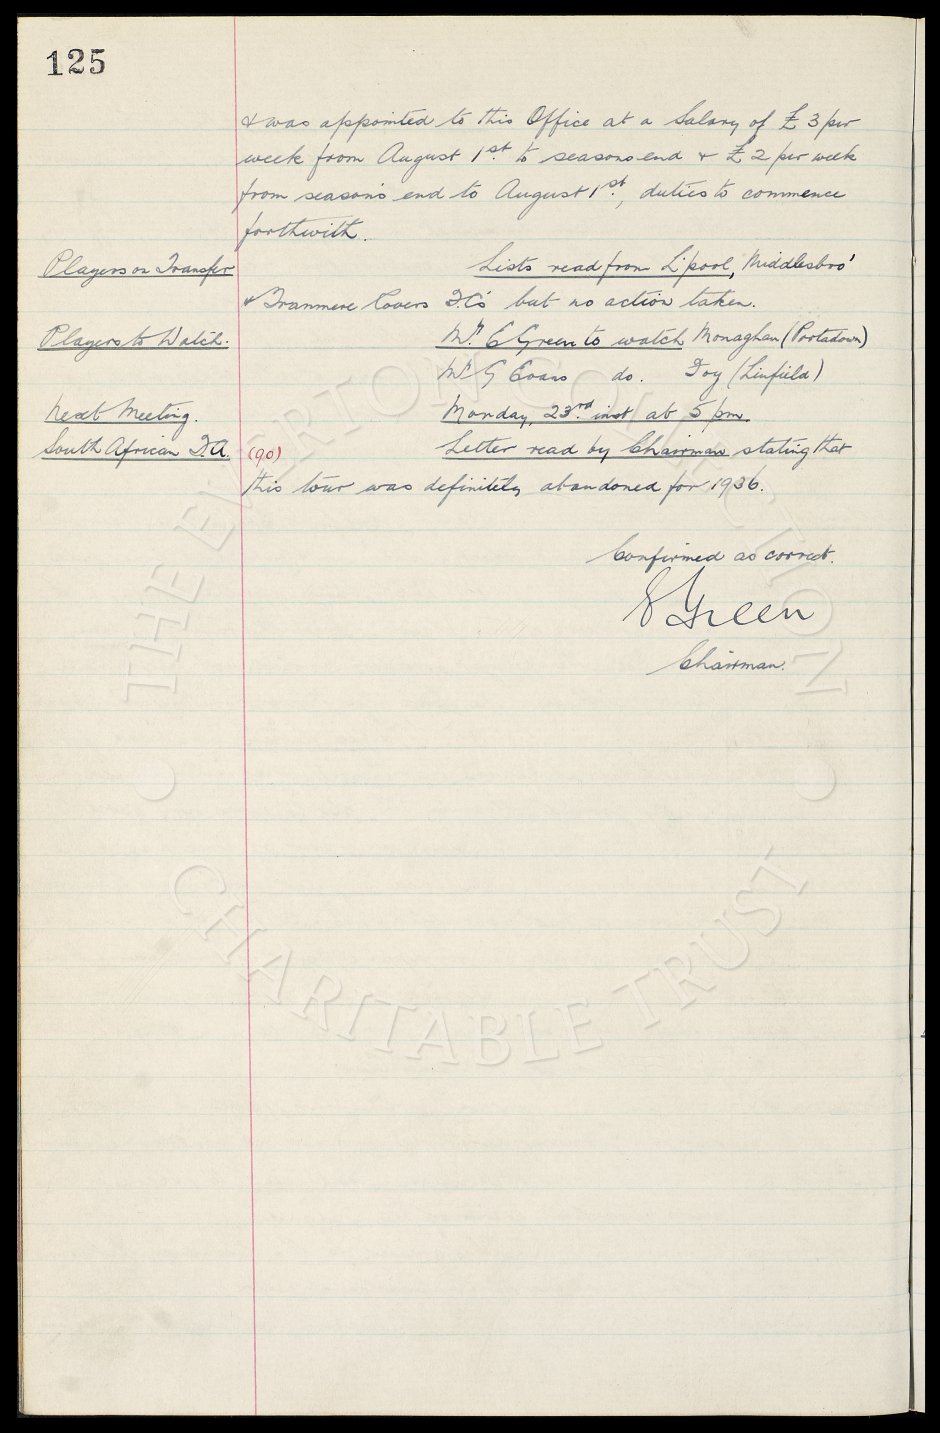 125
& was appointed to this Office at a Salary of £3 per
week from August 1st. to seasons end & £2 per week
from season's end to August 1st., duties to commence
forthwith.
Players on Transfer Lists read from L'pool, Middlesbro'
& Tranmere Rovers F.C's but no action taken.
Players to Watch. Mr. E Green to watch Monaghan (Portadown)
Mr G Evans do. Foy (Linfield)
Next Meeting. Monday, 23rd. inst at 5 pm.
South African F.A. (90) Letter read by Chairman stating that
this tour was definitely abandoned for 1936.
Confirmed as correct.
E Green
Chairman.
THE EVERTON COLLECTION
CHARITABLE TRUST